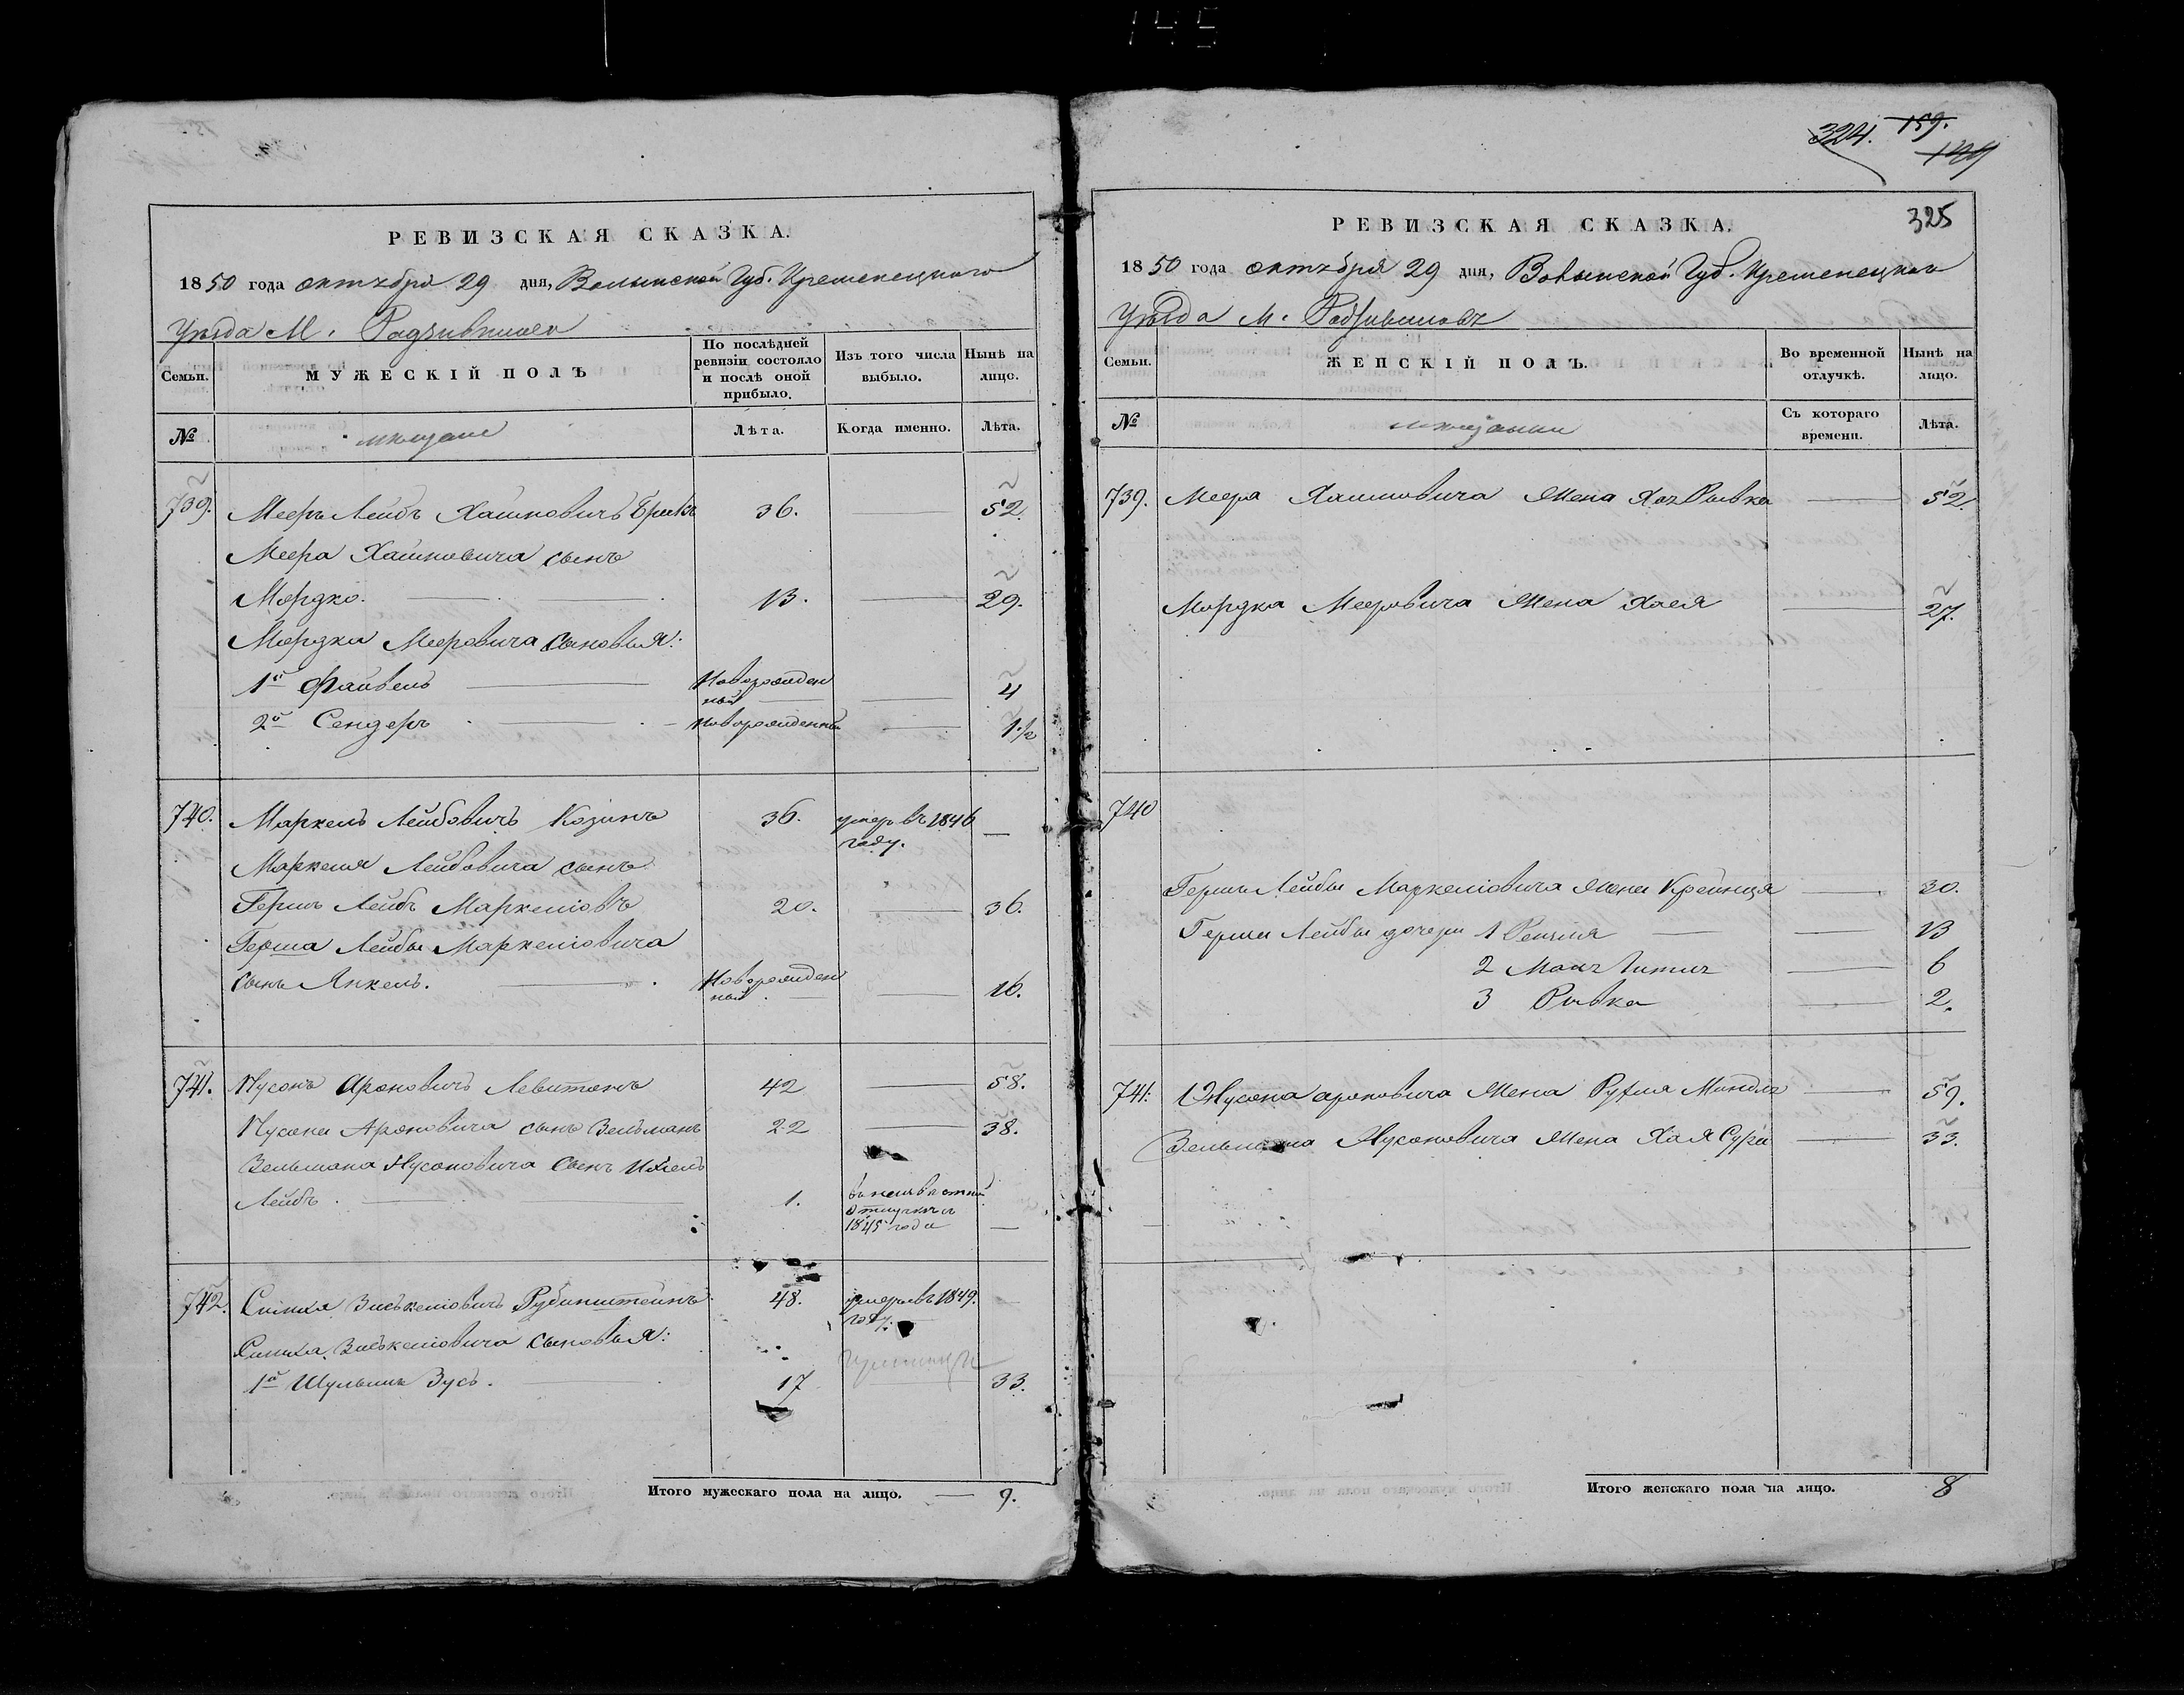 145
РЕВИЗСКАЯ СКАЗКА.
1850 года октября 29 дня, Волынской Губ. Кременецкаго
Уѣзда М.
Семьи.
МУЖЕСКІЙ ПОЛЪ
По послѣдней ревизіи состояло и послѣ оной прибыло.
Изъ того числа выбыло.
Нынѣ на лицо.
№
мѣщане
Лѣта.
Когда именно.
Лѣта.
739. Мееръ Лейбъ Хаимовичъ 36. 52.
Меера Хаимовича сынъ
Мордко. 13. 29.
Мордка Мееровича сыновья:
1й Файвель Новорожден
ный 4
2й Сендеръ Новорожденный 1 1/2
740. Маркель Лейбовичъ Козинъ 36. умеръ въ 1846
году.
Маркеля Лейбовича сынъ
Гершъ Лейбъ Маркеліовъ 20. 36.
Герша Лейбы Маркеліовича
сынъ Янкель. Новорожден
ный 16.
741. Нусонъ Ароновичъ Левитанъ 42 58.
Нусона Ароновича сынъ Зельманъ 22 38.
Зельмана Нусоновича сынъ
Лейбъ. 1. въ неизвѣстной
отлучкѣ съ
1845 года
742. Симха Рубинштейнъ 48. умеръ въ 1849.
году.
Симха сыновья:
1й Шульимъ Зусь. 17 33.
Итого мужескаго пола на лицо. 9.
324. 159.
325
РЕВИЗСКАЯ СКАЗКА.
1850 года октября 29 дня, Волынской Губ. Кременецкаго
Уѣзда М. Радзивиловъ
Семьи.
ЖЕНСКІЙ ПОЛЪ.
Во временной отлучкѣ.
Нынѣ на лицо.
№
мѣщанки
Съ котораго времени.
Лѣта.
739. Меера Хаимовича жена Рывка 52.
Мордка Мееровича жена Хаея 27.
740
Герша Лейбы Маркеліовича жена Крейнця 30.
Герша Лейбы дочери 1 13
2 6
3 Рывка 2.
741. Нусона Ароновича жена 59.
Зельмана Нусоновича жена Хая Сура 33.
Итого женскаго пола на лицо. 8